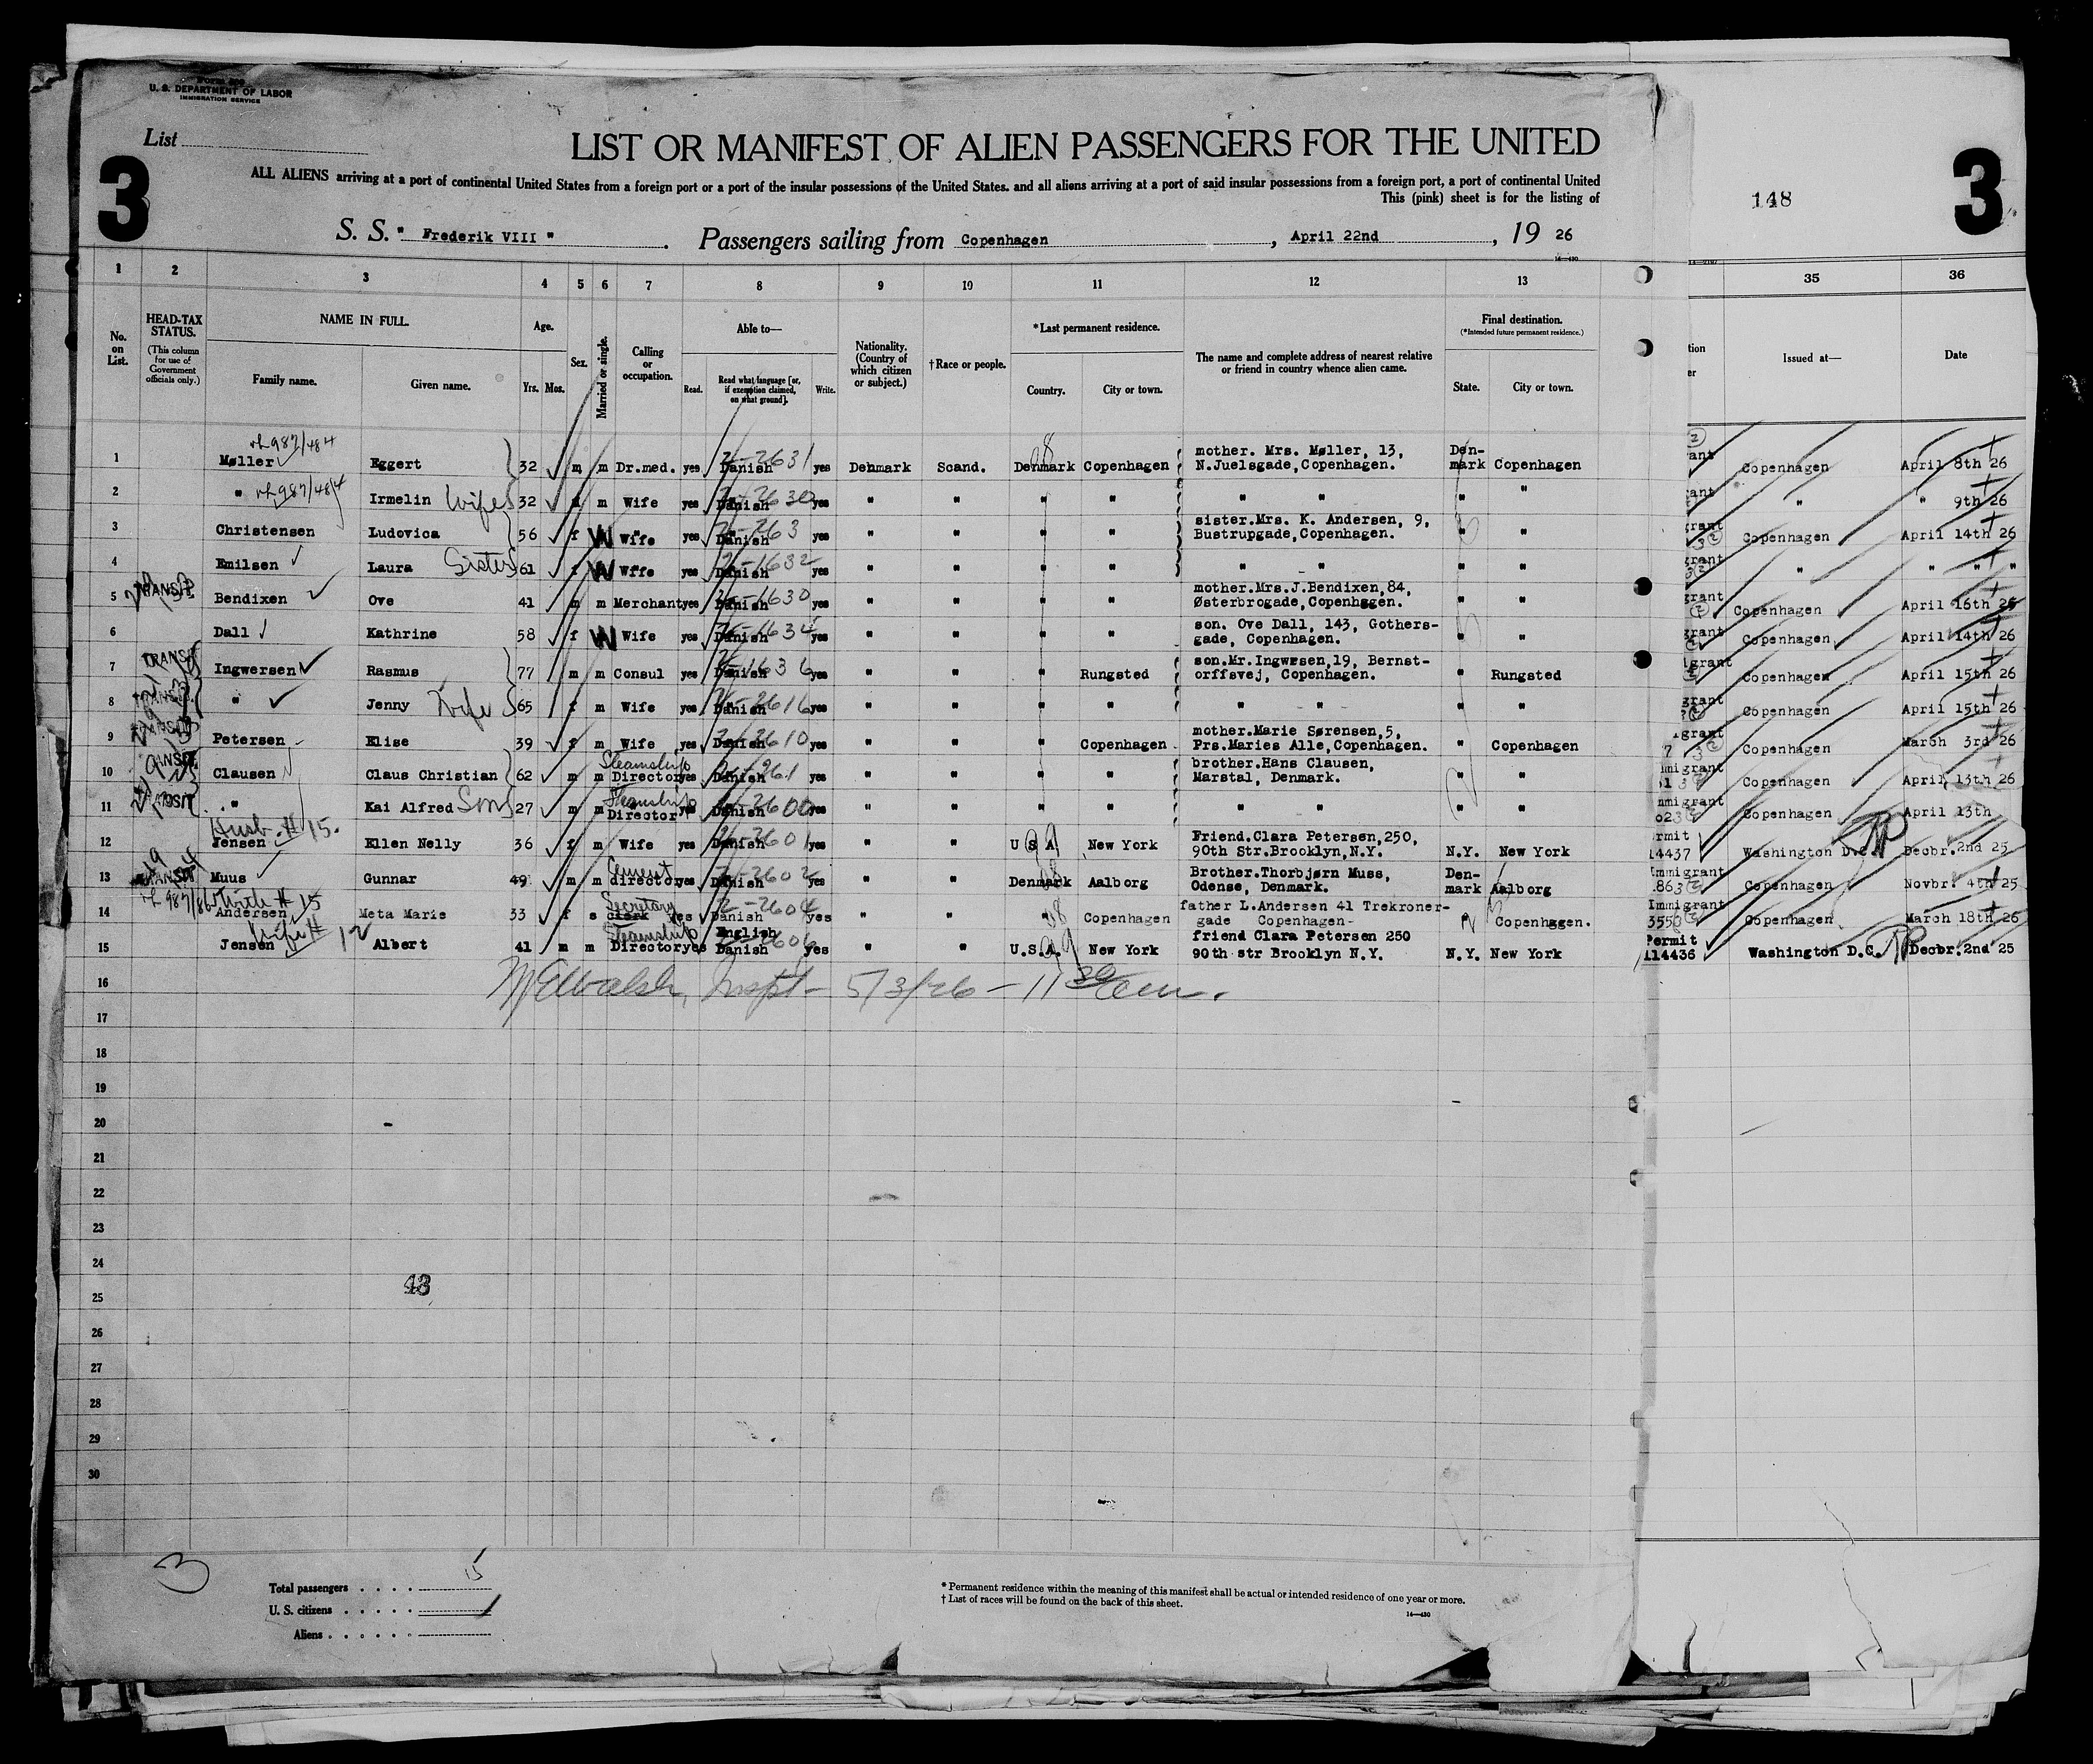 Form 500
U. S. DEPARTMENT OF LABOR
IMMIGRATION SERVICE
List
3
LIST OR MANIFEST OF ALIEN PASSENGERS FOR THE UNITED
ALL ALIENS arriving at a port of continental United States from a foreign port or a port of the insular possessions of the United States, and all aliens arriving at a port of said insular possessions from a foreign port, a port of continental United
This (pink) sheet is for the listing of
148
3
S. S. " Frederik VIII " . Passengers sailing from Copenhagen , April 22nd , 19 26
1 2 3 4 5 6 7 8 9 10 11 12 13 35 36
No. on List.
HEAD-TAX STATUS.
(This column for use of Government officials only.)
NAME IN FULL.
Family name. Given name.
Age.
Yrs. Mos.
Sex.
Married or single.
Calling or occupation.
Able to—
Read. Read what language [or, if exemption claimed, on what ground]. Write.
Nationality. (Country of which citizen or subject.)
†Race or people.
*Last permanent residence.
Country. City or town.
The name and complete address of nearest relative or friend in country whence alien came.
Final destination.
(*Intended future permanent residence.)
State. City or town.
Issued at— Date
1 Møller Eggert 32 m m Dr.med. yes Danish yes Denmark Scand. Denmark Copenhagen mother. Mrs. Møller, 13, N.Juelsgade,Copenhagen. Den-mark Copenhagen Copenhagen April 8th 26
2 " Irmelin Wife 32 f m Wife yes Danish yes " " " " " " " " " " 9th 26
3 Christensen Ludovica 56 f W Wife yes Danish yes " " " " sister.Mrs. K. Andersen, 9, Bustrupgade,Copenhagen. " " Copenhagen April 14th 26
4 Emilsen Laura Sister 61 f W Wife yes Danish yes " " " " " " " " " " " "
5 TRANSIT Bendixen Ove 41 m m Merchant yes Danish yes " " " " mother.Mrs.J.Bendixen,84, Østerbrogade,Copenhagen. " " Copenhagen April 16th 26
6 Dall Kathrine 58 f W Wife yes Danish yes " " " " son. Ove Dall, 143, Gothers-gade, Copenhagen. " " Copenhagen April 14th 26
7 TRANSIT Ingwersen Rasmus 77 m m Consul yes Danish yes " " " Rungsted son.Mr.Ingwrsen,19, Bernst-orffsvej, Copenhagen. " Rungsted Copenhagen April 15th 26
8 TRANSIT " Jenny Wife 65 f m Wife yes Danish yes " " " " " " " " Copenhagen April 15th 26
9 TRANSIT Petersen Elise 39 f m Wife yes Danish yes " " " Copenhagen mother.Marie Sørensen,5, Prs.Maries Alle,Copenhagen. " Copenhagen Copenhagen March 3rd 26
10 TRANSIT Clausen Claus Christian 62 m m Steamship Director yes Danish yes " " " " brother.Hans Clausen, Marstal, Denmark. " " Copenhagen April 13th 26
11 TRANSIT " Kai Alfred Son 27 m m Steamship Director yes Danish yes " " " " " " " " Copenhagen April 13th
Husb. # 15.
12 Jensen Ellen Nelly 36 f m Wife yes Danish yes " " U S A New York Friend.Clara Petersen,250, 90th Str.Brooklyn,N.Y. N.Y. New York 14437 Washington D.C. Decbr.2nd 25
13 TRANSIT Muus Gunnar 49 m m Cement director yes Danish yes " " Denmark Aalborg Brother.Thorbjørn Muss, Odense, Denmark. Den-mark Aalborg Copenhagen Novbr. 4th 25
With # 15
14 Andersen Meta Marie 33 f s Secretary clerk yes Danish yes " " " Copenhagen father L.Andersen 41 Trekroner-gade Copenhagen- Copenhagen. Immigrant Copenhagen March 18th 26
Wife # 12
15 Jensen Albert 41 m m Steamship Director yes English Danish yes " " U.S.A. New York friend Clara Petersen 250 90th str Brooklyn N.Y. N.Y. New York Permit 114436 Washington D.C. Decbr.2nd 25
16 Inspt - 5/3/26 - 11 30 am.
17
18
19
20
21
22
23
24
25
26
27
28
29
30
43
3
Total passengers . . . . 15
U. S. citizens . . . . .
Aliens . . . . . .
* Permanent residence within the meaning of this manifest shall be actual or intended residence of one year or more.
† List of races will be found on the back of this sheet.
14—430